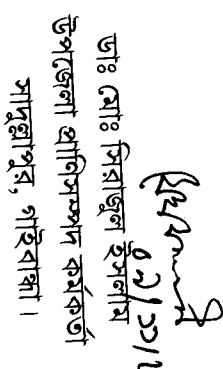 ডাঃ মোঃ সিরাজুল ইসলাম
উপজেলা প্রাণিসম্পদ কর্মকর্তা
সাদুল্লাপুর, গাইবান্ধা।